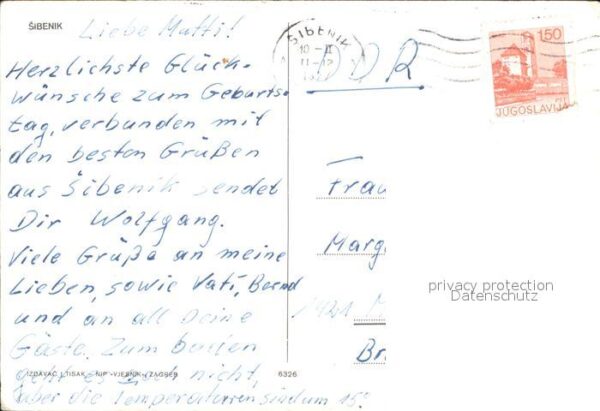 ŠIBENIK
Liebe Mutti!
Herzlichste Glück-
wünsche zum Geburts-
tag, verbunden mit
den besten Grüßen
aus Šibenik sendet
Dir Wolfgang.
Viele Grüße an meine
Lieben, sowie Vati, Bernd
und an all Deine
Gäste. Zum baden
geht es noch nicht,
aber die Temperaturen sind um 15°
IZDAVAČ I TISAK - NIP „VJESNIK“ ZAGREB
6326
ŠIBENIK
10-II
DDR
1,50
JUGOSLAVIJA
Frau
Marg
1421
Br
privacy protection
Datenschutz